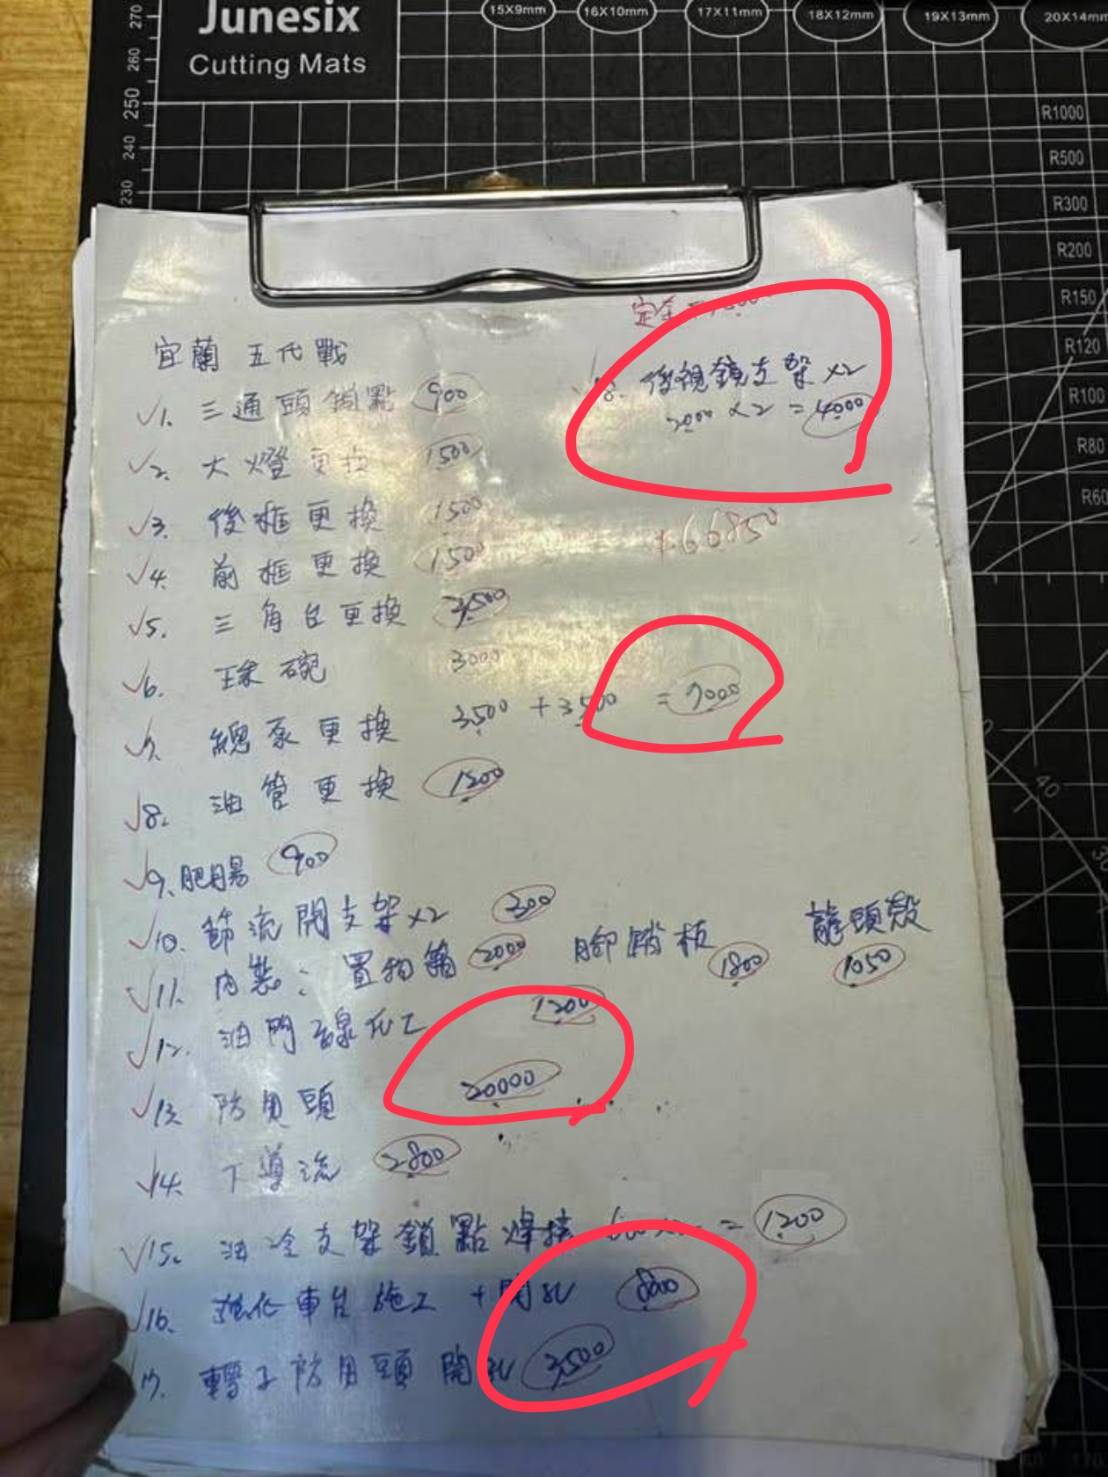 Junesix
Cutting Mats
15X9mm 16X10mm 17X11mm 18X12mm 19X13mm 20X14mm
270
260
250
240
230
R1000
R500
R300
R200
R150
R120
R100
R80
R60
40
定金
宜蘭 五代戰
1. 三通頭鎖點 900
2. 大燈更換 1500
3. 後框更換 1500
4. 前框更換 1500
5. 三角台更換 3,500
6. 珠碗 3000
7. 總泵更換 3,500 + 3,500 = 7000
8. 油管更換
9. 肥腸 900
10. 節流閥支架x2 300
11. 內裝: 置物箱 2000 腳踏板 1800 龍頭殼 1050
12. 油門線加工 1200
13. 防甩頭 20000
14. 下導流 2800
15. 油冷支架鎖點焊接 = 1200
16. 強化車台施工 + 開孔 8000
17. 轉子防甩頭開孔 3,500
18. 後視鏡支架 x2
2000 x2 = 4000
66850